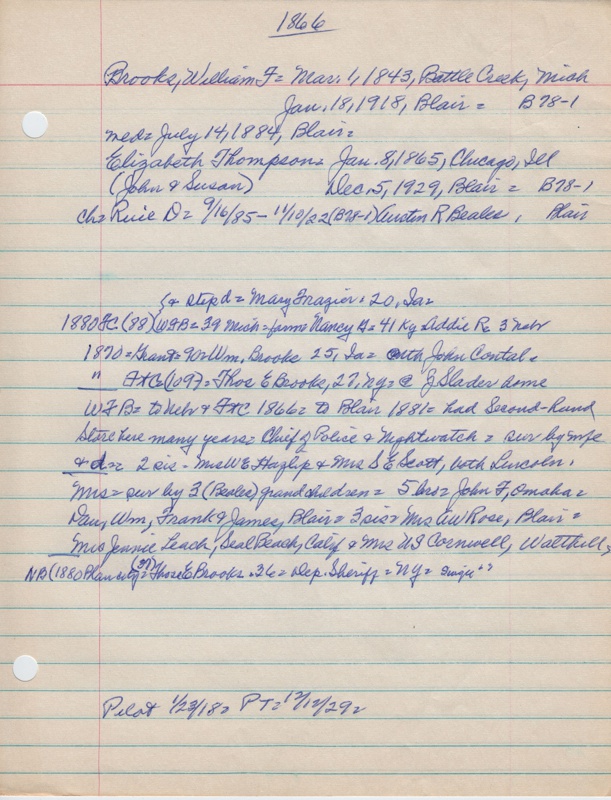 1866
Brooks, William F = Mar. 1, 1843, Battle Creek, Mich
Jan. 18, 1918, Blair = B78-1
med = July 14, 1884, Blair =
Elizabeth Thompson = Jan. 8, 1865, Chicago, Ill
(John & Susan) Dec. 5, 1929, Blair = B78-1
ch = D = 9/16/85 - 11/10/22 (B78-1) Austin R Beales, Blair
{& step d = Mary Frazier = 20, Ia =
1880 FC (88) WFB = 39 Mich = farm = Nancy G = 41 Ky = Addie R = 3 Nebr
1870 = Grant = Wm. Brooks 25, Ia = with John Contal =
" FtC (109) = Thos E Brooks, 27, NY = @ J Slader home
WFB = to Nebr & FtC 1866 = to Blair 1881 = had Second-hand
Store here many years = Chief of Police & Nightwatch = sur by wife
& d = 2 sis - Mrs WE Hazlip & Mrs S E Scott, both Lincoln.
Mrs = sur by 3 (Beales) grandchildren = 5 bros = John F, Omaha =
Dan, Wm, Frank & James, Blair = 3 sis = Mrs AW Rose, Blair =
Mrs Jennie Leach, Seal Beach, Calif & Mrs Cornwell, Walthill,
NB (1880 Thos E Brooks = 36 = Dep. Sheriff = NY = single
Pilot 1/23/18 = PT = 12/12/29 =